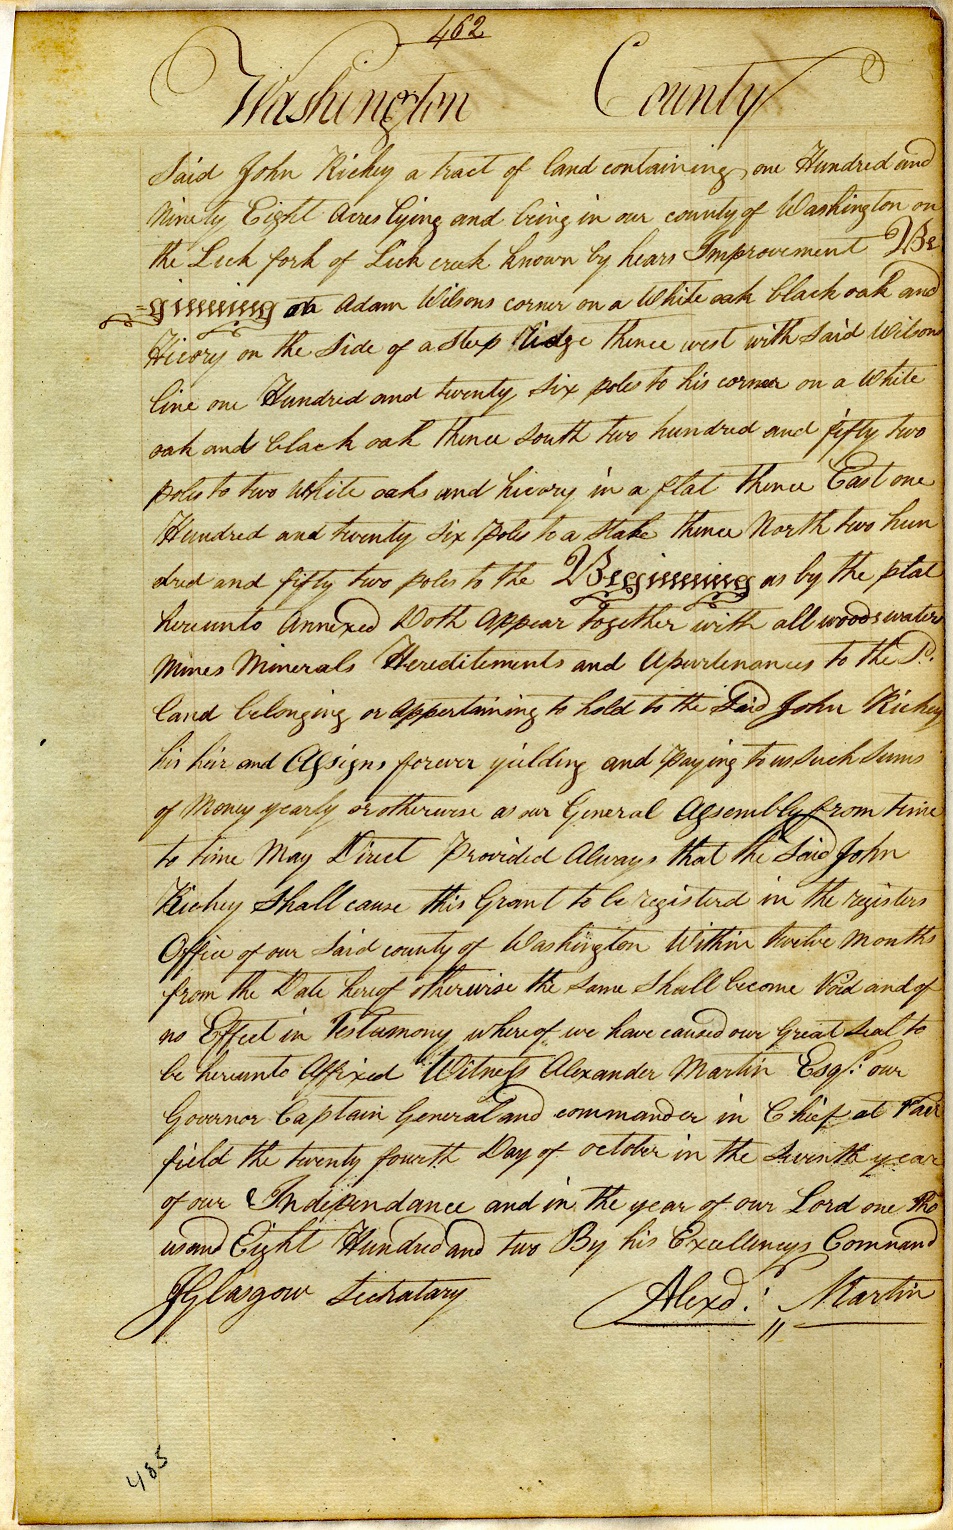 462
Washington County
Said John Richey a tract of land containing one Hundred and
Ninety Eight Acres lying and being in our county of Washington on
the Lick fork of Lick creek known by hears Improvement Be
=ginning on Adam Wilsons corner on a White oak black oak and
Hicory on the Side of a Steep Ridge thence west with Said Wilsons
line one Hundred and twenty Six poles to his corner on a White
oak and black oak thence South two hundred and fifty two
poles to two White oaks and hicory in a flat thence East one
Hundred and twenty Six poles to a Stake thence North two hun
dred and fifty two poles to the Beginning as by the plat
hereunto Annexed Doth Appear together with all woods waters
Mines Minerals Hereditements and Apurtenances to the Sd.
land belonging or Appertaining to hold to the Said John Richey
his heir and Assigns forever yielding and paying to us Such Sums
of Money yearly or otherwise as our General Assembly from time
to time May Direct Provided Always that the Said John
Richey Shall cause this Grant to be registerd in the registers
Office of our Said county of Washington Within twelve Months
from the Date hereof otherwise the Same Shall become Void and of
no Effect in Testamony whereof we have caused our Great Seal to
be hereunto Affixed Witness Alexander Martin Esqr. our
Governor Captain General and commander in Chief at Fair
field the twenty fourth Day of October in the Seventh year
of our Independance and in the year of our Lord one Tho
usand Eight Hundred and two By his Excellencys Command
JGlasgow Sechatary Alexd. Martin
485